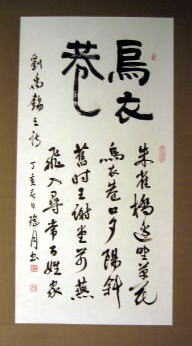 烏衣
巷
朱雀橋邊野草花
烏衣巷口夕陽斜
舊時王謝堂前燕
飛入尋常百姓家
劉禹錫之詩 丁亥春日 瑤月書